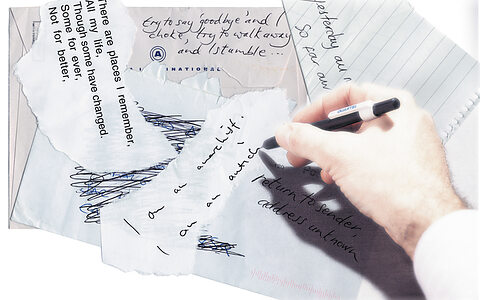 There are places I remember,
All my life.
Though some have changed.
Some for ever,
Not for better,
try to say 'goodbye' and I
choke, try to walk away
and I stumble ...
A
NATIONAL
Yesterday all
So far aw
I am an anarchist.
I am an antich
return to sender,
address unknown